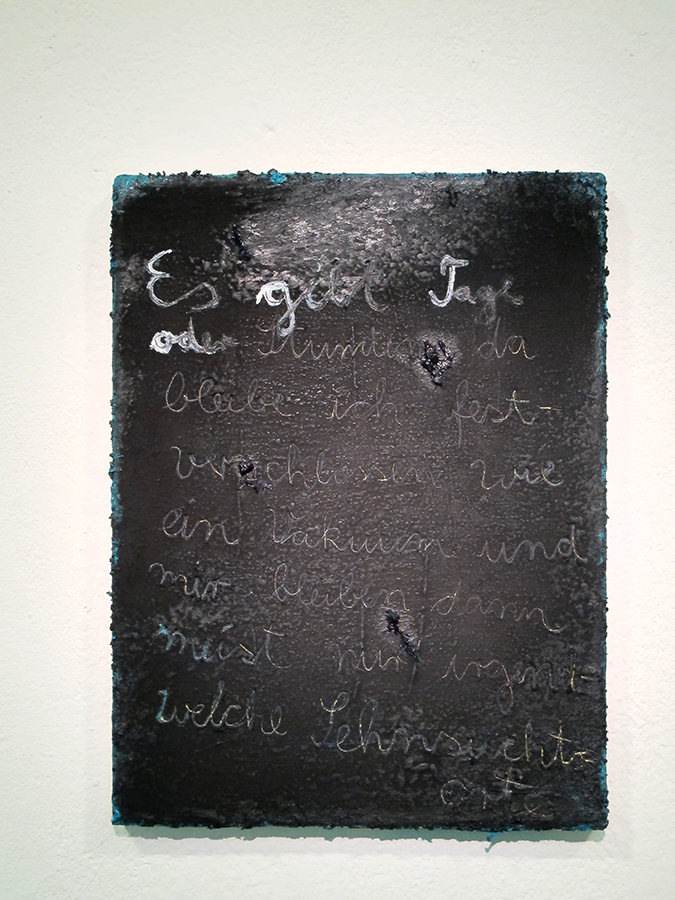 Es gibt Tage
oder Stunden da
bleibe ich fest-
verschlossen wie
ein Vakuum und
mir bleiben dann
meist nur irgend-
welche Sehnsucht-
orte